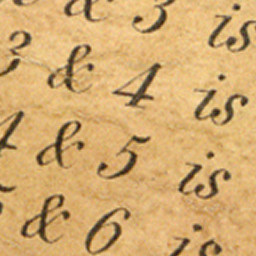 & 3 is
3 & 4 is
4 & 5 is
& 6 is